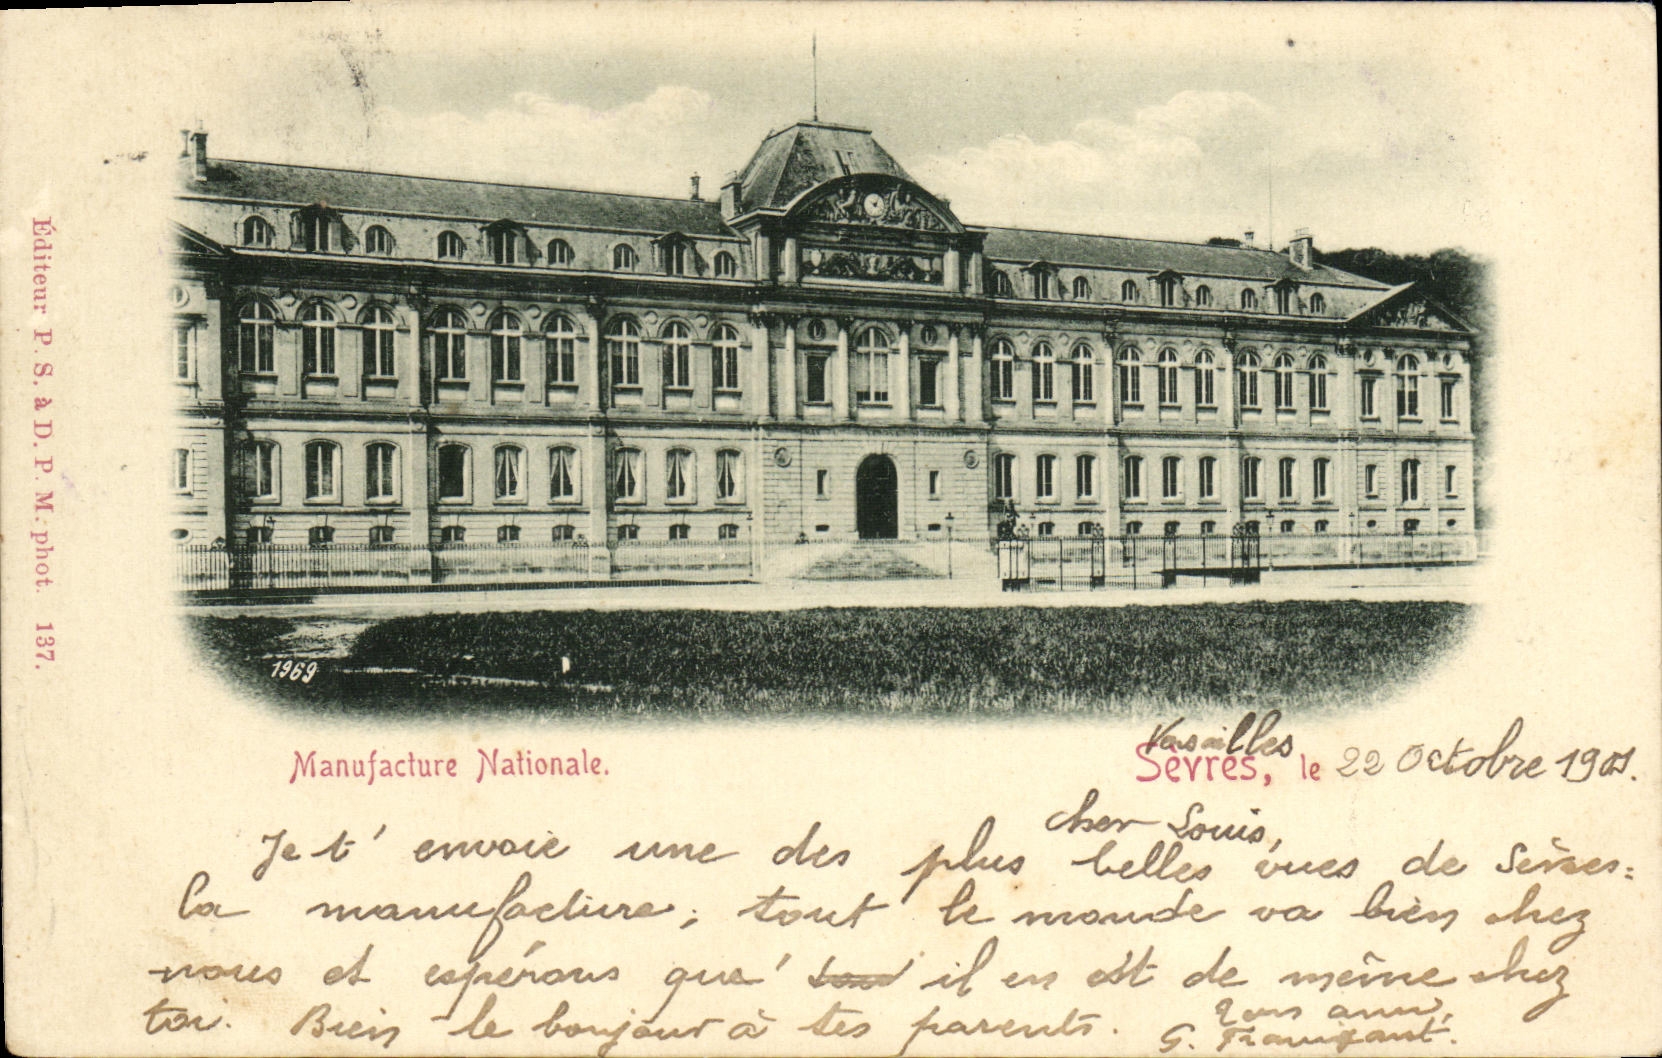 Éditeur P. S. à D. P. M: phot. 137.
1969
Manufacture Nationale.
Versailles
Sèvres, le 22 Octobre 1901.
cher Louis,
Je t' envoie une des plus belles vues de Sèvres:
la manufacture; tout le monde va bien chez
nous et espérons que' il en est de même chez
toi. Bien le bonjour à tes parents.
G.